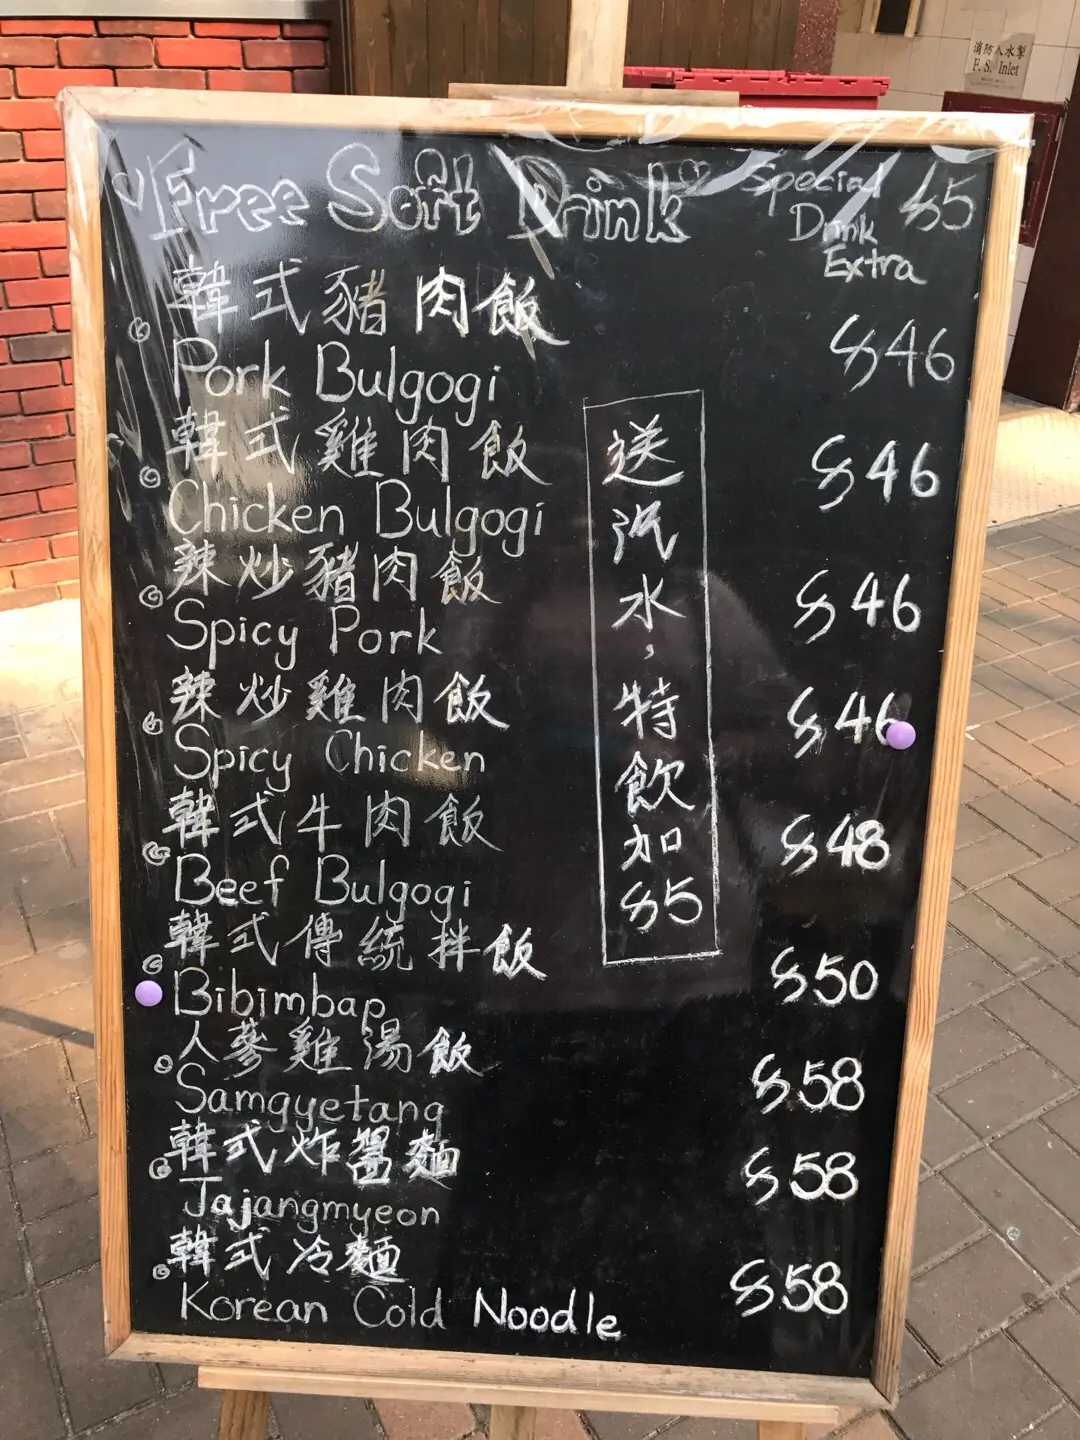 消防入水掣
F.S. Inlet
Free Soft Drink
Special
Drink
Extra
$5
韓式豬肉飯
Pork Bulgogi
$46
韓式雞肉飯
Chicken Bulgogi
$46
辣炒豬肉飯
Spicy Pork
$46
辣炒雞肉飯
Spicy Chicken
$46
韓式牛肉飯
Beef Bulgogi
$48
韓式傳統拌飯
Bibimbap
$50
人參雞湯飯
Samgyetang
$58
韓式炸醬麵
Jajangmyeon
$58
韓式冷麵
Korean Cold Noodle
$58
送汽水，特飲加$5